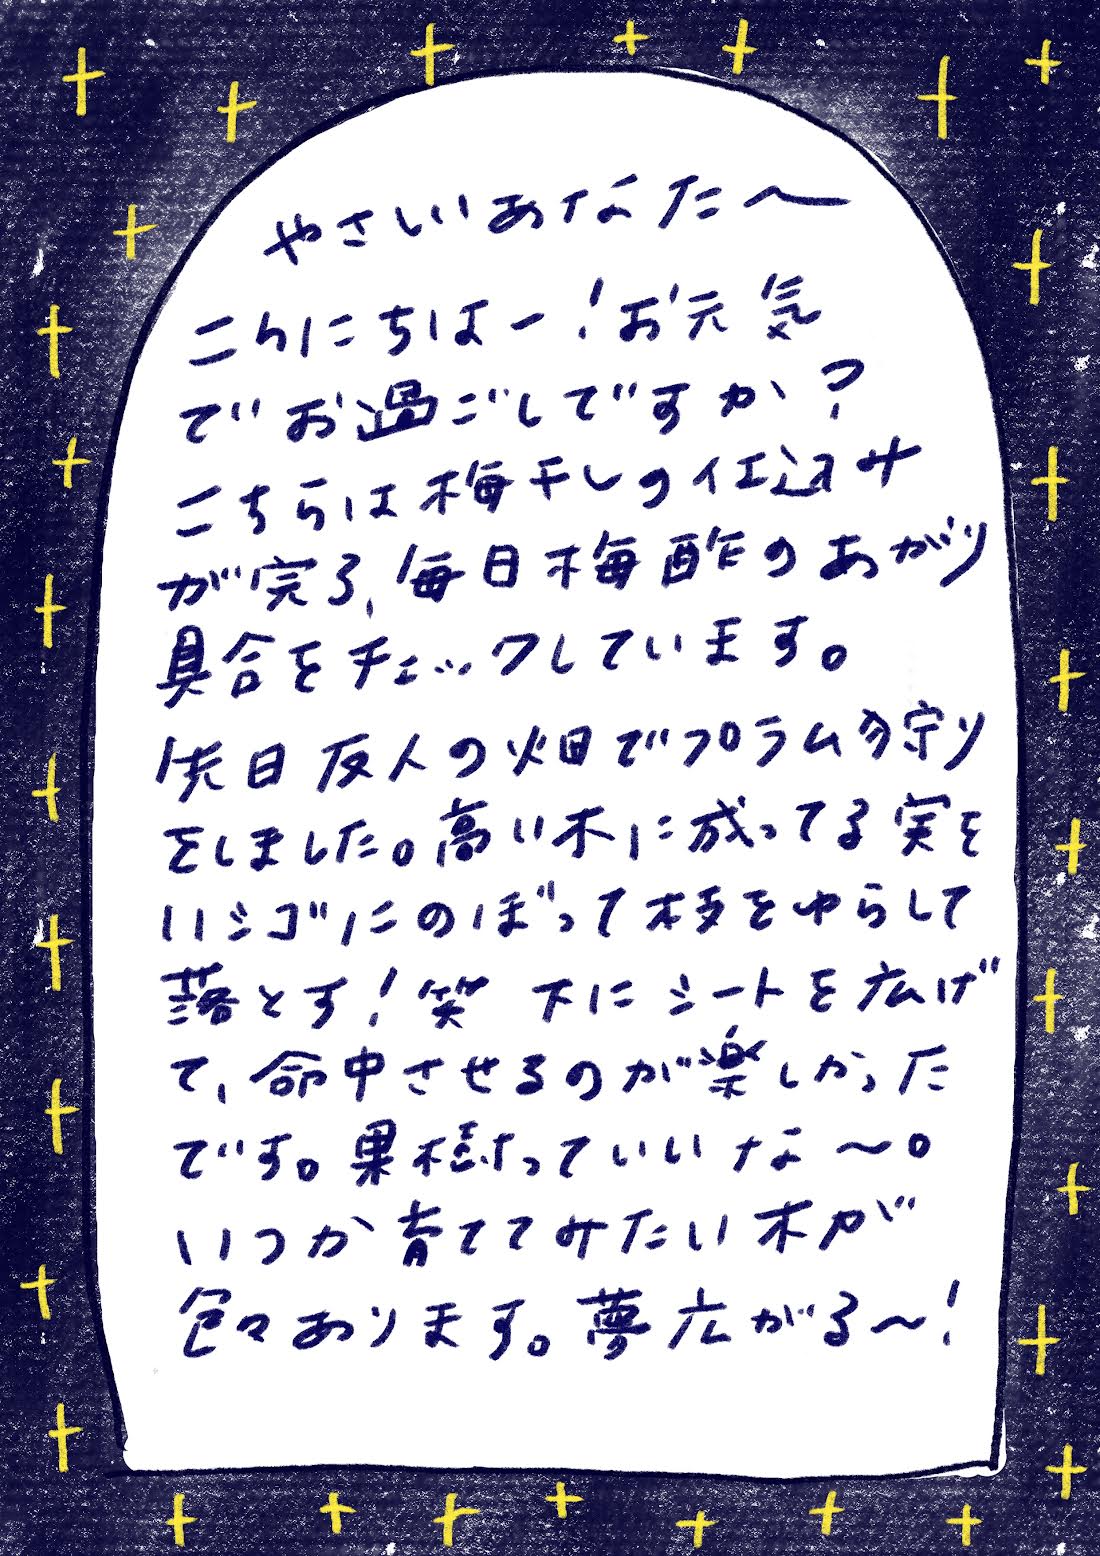 やさしいあなた〜
こんにちはー！お元気
でお過ごしですか？
こちらは梅干しの仕込み
が完了、毎日梅酢のあがり
具合をチェックしています。
先日友人の畑でプラム狩り
をしました。高い木に成ってる実を
ハシゴにのぼって枝をゆらして
落とす！笑 下にシートを広げ
て、命中させるのが楽しかった
です。果樹っていいな〜。
いつか育ててみたい木が
色々あります。夢広がる〜！